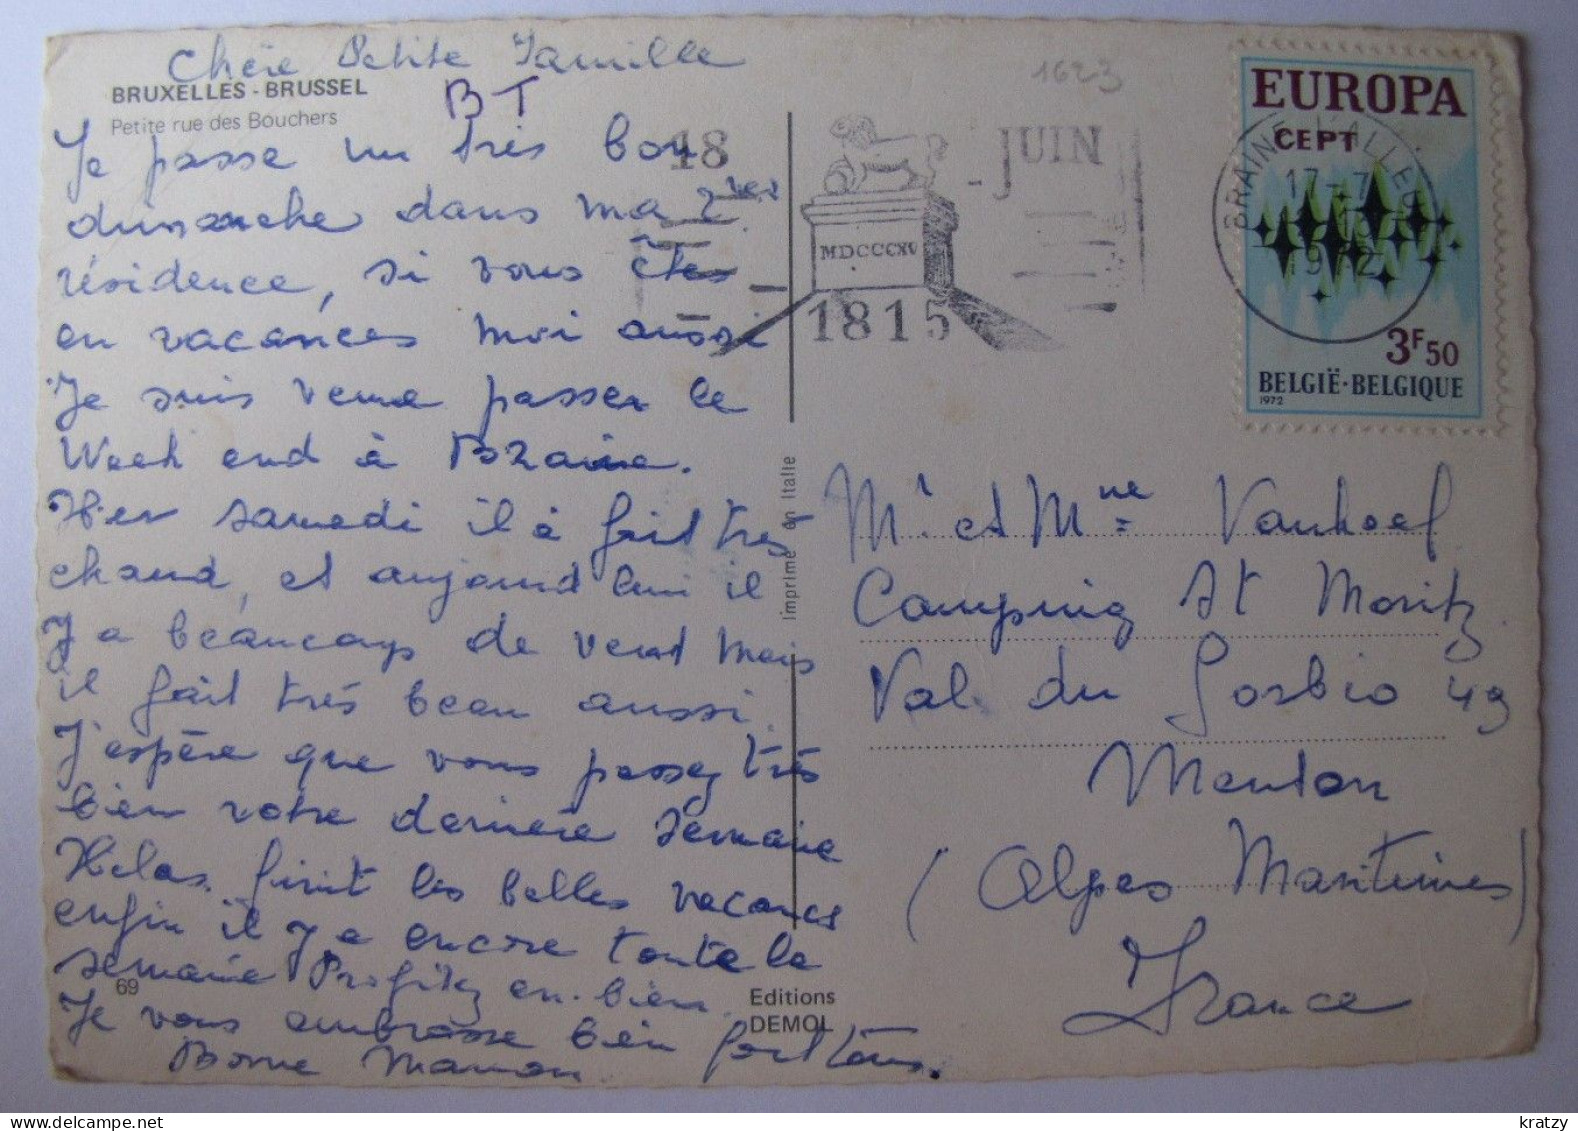 Chère Petite Famille
BRUXELLES - BRUSSEL
BT
Petite rue des Bouchers
Je passe un très bon
dimanche dans ma 2
résidence, si vous êtes
en vacances moi aussi
Je suis venue passer le
Week end à Braine.
Hier samedi il à fait très
chaud, et aujourd hui il
y a beaucoup de vent mais
il fait très beau aussi.
J'espère que vous passez très
bien votre dernière semaine
Hélas finit les belles vacances
enfin il y a encore toute la
semaine Profitez en bien.
69
Je vous embrasse bien fort tous.
Bonne Maman
Imprimé en Italie
Editions
DEMOL
1623
18 JUIN
MDCCCXV
1815
BRAINE-L'ALLEUD
17-7
1972
EUROPA
CEPT
3F50
BELGIË·BELGIQUE
1972
Mr et Mme Vanhoef
Camping St Moritz
Val du Gorbio 49
Menton
(Alpes Maritimes)
France
kratzy